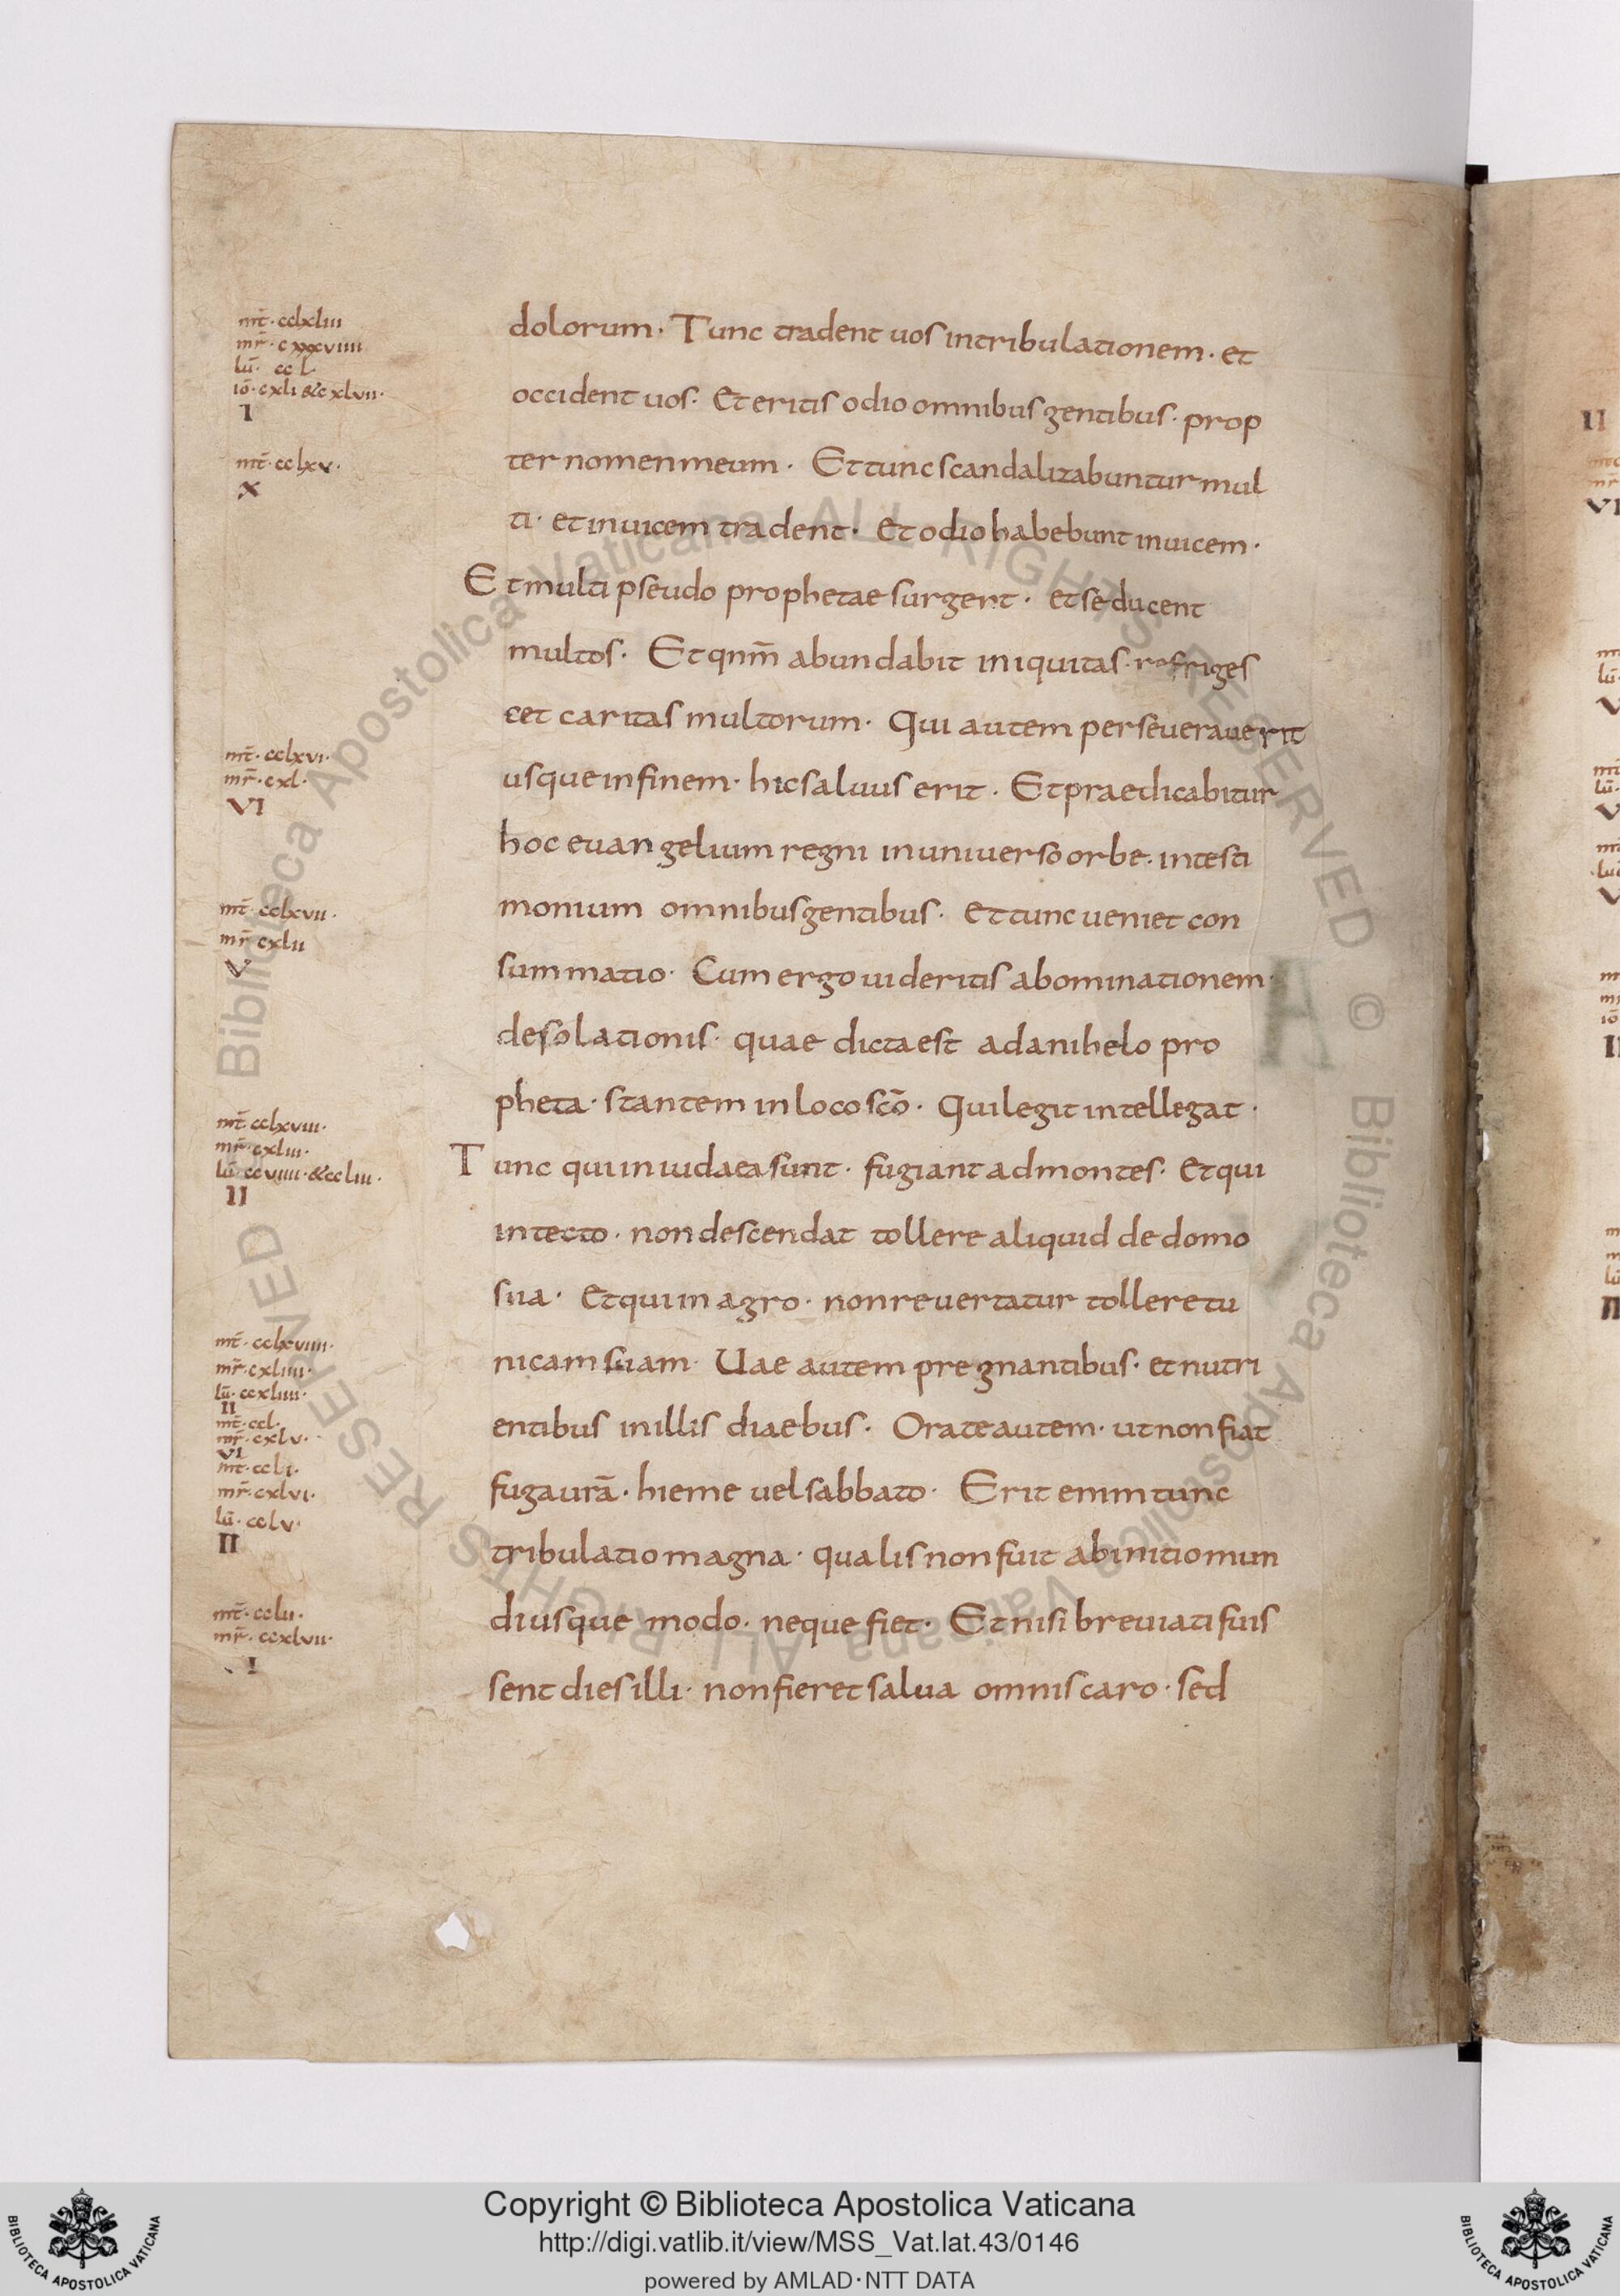 mt̄· cclxliii
mr̄· cxxxviiii
lū· ccl·
iō· cxli &cxlvii·
I
mt̄· cclxv·
X
mt̄· cclxvi·
mr̄· cxl·
VI
mt̄· cclxvii·
mr̄ cxlii
V
mt̄· cclxviii·
mr̄· cxliii·
lū· ccviiii· &ccliii·
II
mt̄· cclxviiii·
mr̄· cxliiii·
lū· ccxliiii·
II
mt̄· ccl·
mr̄· cxlv·
VI
mt̄· ccli·
mr̄· cxlvi·
lū· cclv·
II
mt̄· cclii·
mr̄· ccxlvii·
dolorum· Tunc tradent uos intribulationem· et
occident uos· Et eritis odio omnibus gentibus· prop
ter nomen meum· Et tunc scandalizabuntur mul
ti· et inuicem tradent· Et odio habebunt inuicem·
Et multi pseudo prophetae surgent· et seducent
multos· Et qnm̄ abundabit iniquitas· refriges
cet caritas multorum· Qui autem perseuerauerit
usque in finem· hic saluus erit· Et praedicabitur
hoc euangelium regni in uniuerso orbe· in testi
monium omnibus gentibus· et tunc ueniet con
summatio· Cum ergo uideritis abominationem
desolationis· quae dicta est adanihelo pro
pheta· stantem in loco scō· Qui legit intellegat·
Tunc qui in iudaea sunt· fugiant ad montes· Et qui
in tecto· non descendat tollere aliquid de domo
sua· Et qui in agro· non reuertatur tollere tu
nicam suam· Uae autem pregnantibus· et nutri
entibus in illis diaebus· Orate autem· ut non fiat
fuga urā· hieme uel sabbato· Erit enim tunc
tribulatio magna· qualis non fuit ab initio mun
di usque modo· neque fiet· Et nisi breuiati fuis
sent dies illi· non fieret salua omnis caro· sed
Biblioteca Apostolica Vaticana ALL RIGHTS RESERVED ©
Biblioteca Apostolica Vaticana ALL RIGHTS RESERVED
II
VI
Copyright © Biblioteca Apostolica Vaticana
http://digi.vatlib.it/view/MSS_Vat.lat.43/0146
powered by AMLAD·NTT DATA
BIBLIOTECA APOSTOLICA VATICANA
BIBLIOTECA APOSTOLICA VATICANA